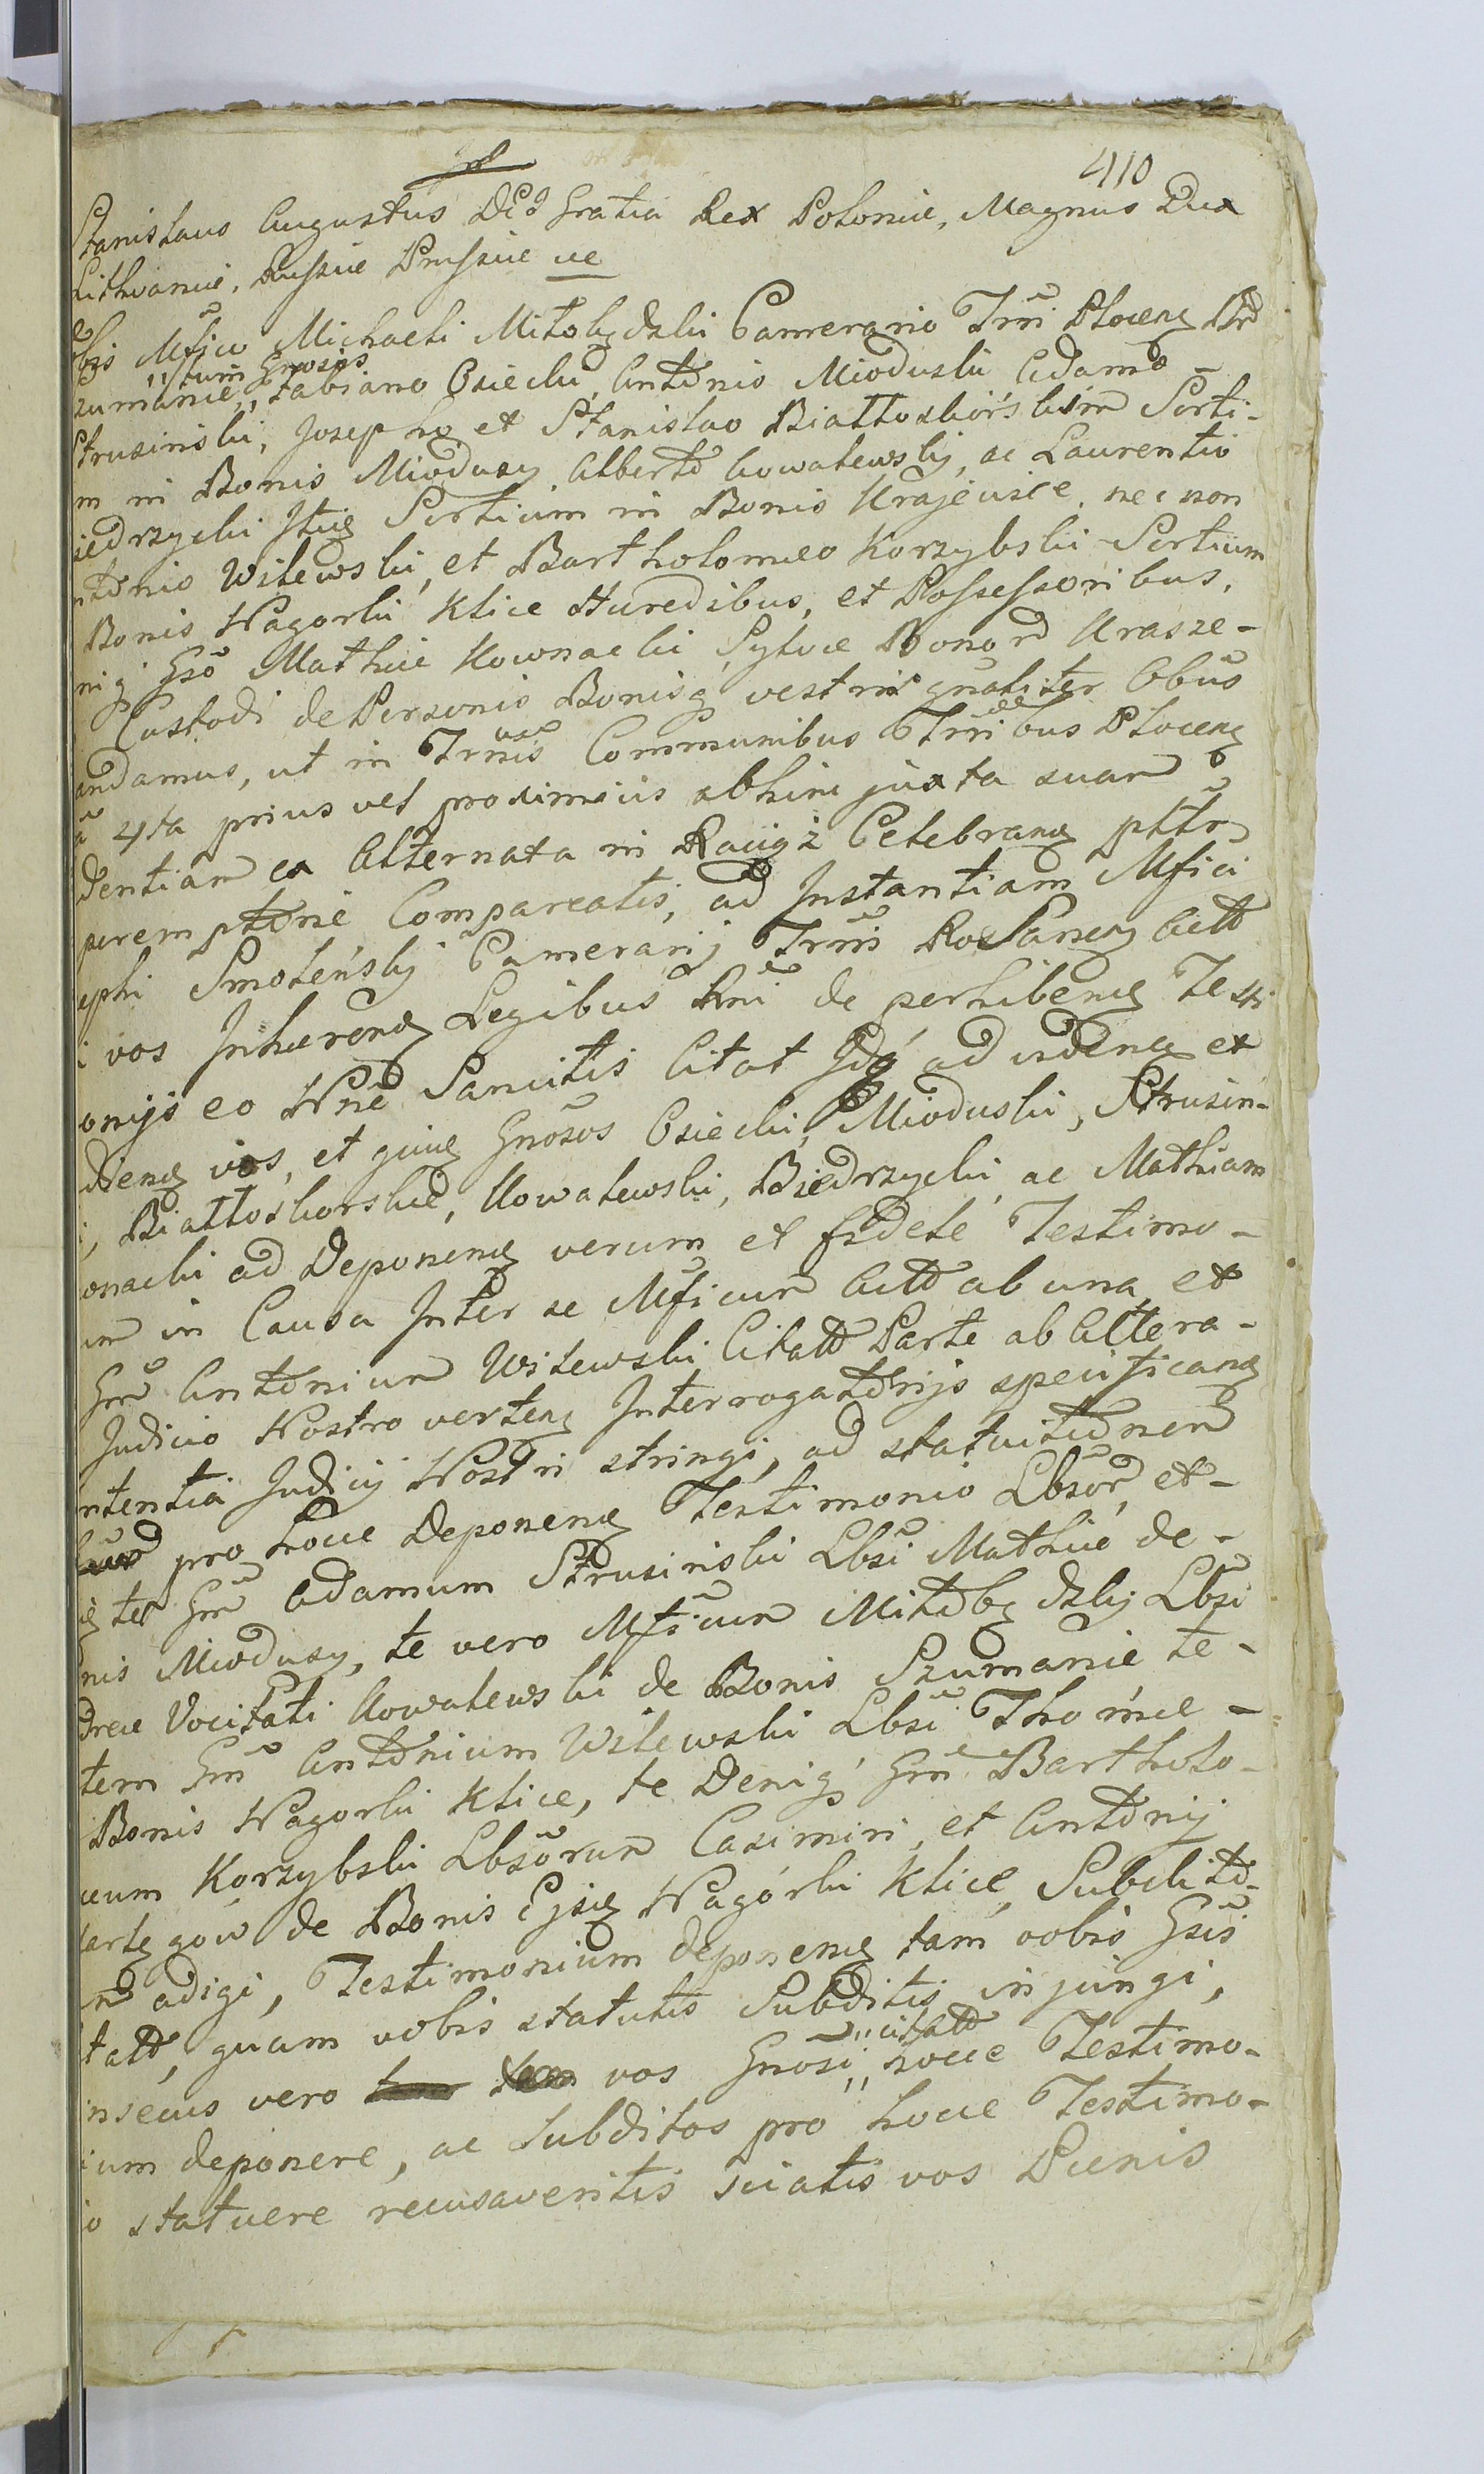 410
Stanislaus Augustus Dei Gratia Rex Poloniæ, Magnus Dux
Lithvaniæ, Russiæ Prussiæ ue
Mfico Michaeli Mitobędzki Camerario Trrii Plocens
tum Gnosis
zumanie,, Fabiano Osiecki, Antonio Mioduski Adamo
Strusinski, Josepho et Stanislao Białłoskórskim Sorti-
m in Bonis Miodusy Alberto Kowalewski, ac Laurentio
iedrzycki Itidq Sortium in Bonis Krajewice, nec non
ntonio Wilewski, et Bartholomæo Korzybski Sortium
Bonis Nagorki Klice Hæredibus, et Possessoribus,
niq Gso Mathiæ Kownacki Sylvæ Bonord Krasze-
Custodi de Personis Bonisq vestris gnaliter Obus
andamus, ut in Trmis Communibus Trribus Plocens
4ta prius vel proximiis abhinc juxta suam
dentiam ex Alternata in Raciąż Celebrand
peremptorie Compareatis, ad Instantiam Mfici
ephi Smoleński Camerarij Trrii Rosanens Actt
i vos Inhærend Legibus Rni de perhibend Testi
onijs eo Nne Sancitis Citat Idq ad videnq et
diend vos, et quivq Gnosos Osiecki, Mioduski, Strusin-
i, Białłoskorskie, Kowalewski, Biedrzycki, ac Mathiam
onacki ad Deponend verum et fidele Testimo-
um in Causa Inter se Mficum Actt ab una, et
Gm Antonium Wilewski Citatt Parte ab Altera-
Judicio Nostro vertens Interrogatorijs specificand
ntentia Judicij Nostri stringi, ad statuitionem
pro hocce Deponend Testimonio Lbsor, et-
te Gm Adamum Strusinski Lbsi Mathiæ de-
nis Miodusy, te vero Mficum Mitobędzkij Lbsi
dreæ Vocitati Kowalewski de Bonis Szumanie te-
tem Gm Antonium Wilewski Lbsi Thomæ-
Bonis Nagorki Klice, te Deniq Gm Bartholo-
æum Korzybski Lbsorum Casimiri, et Antonij
artęgow de Bonis Ejsdq Nagórki Klice, Subdito-
adigi, Testimonium deponend tam vobis Gsis
tatt, quam vobis statutis Subditis injungi,
citatt
nsecus vero vos Gnosi,, hocce Testimo-
ium deponere, ac Subditos pro hocce Testimo-
io statuere recusaveritis sciatis vos Pænis